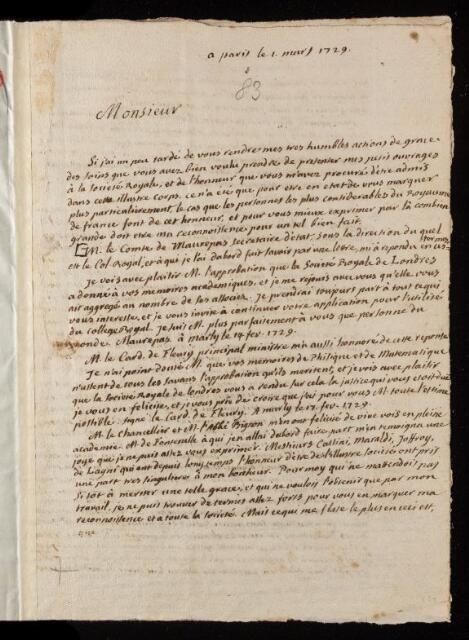 a paris le 1. mars 1729.
83
Monsieur
Si j'ai un peu tardé de vous rendre mes tres humbles actions de grace
des soins que vous avez bien voulu prendre de presenter mes petis ouvrages
à la societé Royale, et de l'honneur que vous m'avez procuré d'etre admis
dans cette illustre corps. ce n'a eté que pour etre en etat de vous marquer
plus particulierement, le cas que les personnes les plus considerables du Royaume
de france font de cet honneur, et pour vous mieux exprimer par là combien
grande doit etre ma reconnoissence pour un tel bien fait.
M. le Comte de Maurepas secretaire d'etat, sous la direction du quel
est le Col. Royal, et à qui je l'ai dabord fait savoir par une letre, m'a repondu en ces
termes
Je vois avec plaisir M. l'approbation que la Societé Royale de Londres
a donné à vos memoires academiques, et je me rejouis avec vous qu'elle vous
ait aggregé au nombre de ses associez. Je prendrai toujours part à tout ce qui
vous interesse, et je vous invite à continuer votre application pour l'utilité
du college Royal. Je suis M. plus parfaitement à vous que personne du
monde Maurepas. à marly le 14 fev. 1729.
M. le Card. de Fleury principal ministre m'a aussi honnoré de cette reponse
Je n'ai point douté M. que vos memoires de Phisique et de Matematique
n'ussent de tous les savans l'approbation qu'ils meritent, et je vois avec plaisir
que la Societé Royale de Londres vous a rendu sur cela la justice qui vous etoit due
je vous en felicite, et je vous prie de croire que j'ai pour vous M. toute l'estime
possible. signé le Card. de Fleury. à marly le 17. fev. 1729.
M. le Chancelier et M. l'Abbé Bignon m'en ont felicité de vive voix en pleine
academie. M. de Fontenelle à qui j'en allai dabord faire part m'en temoigna une
joye que je ne puis assez vous exprimer. Messieurs Cassini, Maraldi, Joffroy,
de Lagni qui ont depuis long temps l'honneur d'etre de l'illustre societé ont pris
une part tres singuliere à mon bonheur. Pour moy qui ne m'attendoit pas
si tôt à meriter une telle grace, et qui ne voulois l'obtenir que par mon
travail, je ne puis trouver de termes assez forts pour vous en marquer ma
reconnoissence et à toute la societé. Mais ce qui me flate le plus en ceci est,